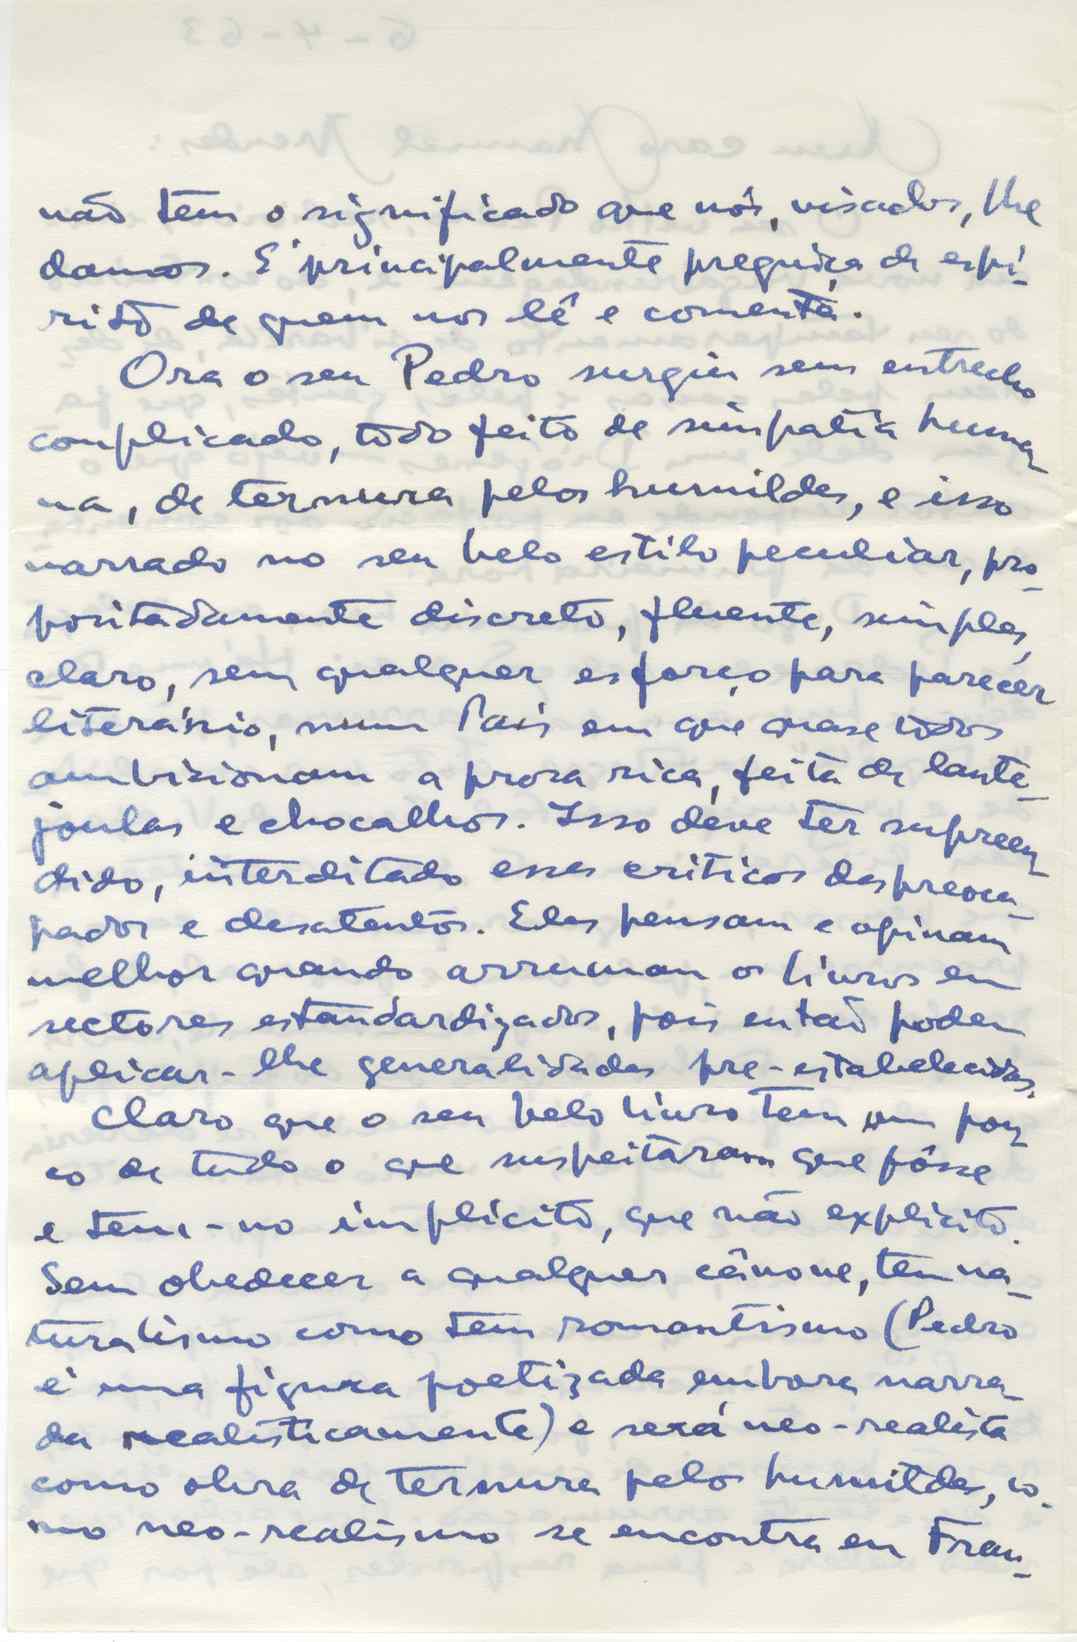 não tem o significado que nós, visados, lhe
damos. E' principalmente preguiça de espí-
rito de quem nos lê e comenta.
Ora o seu Pedro surgiu sem entrecho
complicado, todo feito de simpatia huma-
na, de ternura pelos humildes, e isso
narrado no seu belo estilo peculiar, pro-
positadamente discreto, fluente, simples,
claro, sem qualquer esforço para parecer
literário, num País em que quase todos
ambisionam a prosa rica, feita de lante-
joulas e chocalhos. Isso deve ter supreen-
dido, interditado esses criticos despreocu-
pados e desatentos. Eles pensam e opinam
melhor quando arrumam os livros em
sectores estandardizados, pois então podem
aplicar-lhe generalidades pre-estabelecidas.
Claro que o seu belo livro tem um pou-
co de tudo o que suspeitaram que fôsse
e tem-no implícito, que não explícito.
Sem obedecer a qualquer cânone, tem na-
turalismo como tem romantismo (Pedro
é uma figura poetizada embora narra-
da realisticamente) e será neo-realista
como obra de ternura pelos humildes, co-
mo neo-realismo se encontra em Fran-